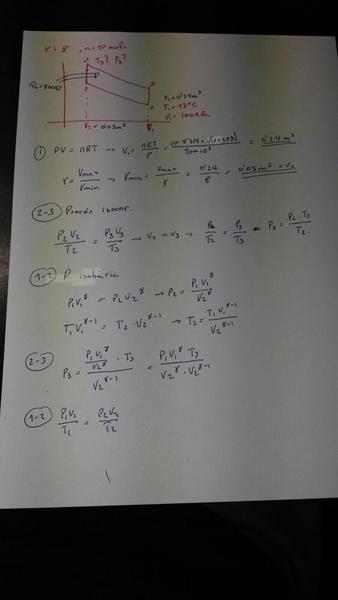 r = 8 , n = 10 moli.
T3? P3?
V1 = 0'24 m³
T1 = 17°C
P1 = 100KPa
V2 = 0'03 m³
V1
① PV = nRT → V1 = nRT/P = 0'24 m³
r = Vmax/Vmin → Vmin = Vmax/r = 0'24/8 = 0'03 m³ = V2
2-3 Procés isocor.
P2V2/T2 = P3V3/T3 → V2 = V3 → P2/T2 = P3/T3 → P3 = P2·T3/T2.
1-2 P
P1V1^γ = P2V2^γ → P2 = P1V1^γ/V2^γ
T1V1^γ-1 = T2·V2^γ-1 → T2 = T1V1^γ-1/V2^γ-1
2-3 P3 = P1V1^γ/V2^γ · T3 / V2^γ-1 = P1V1^γ T3/V2^γ·V2^γ-1
1-2 P1V1/T1 = P2V2/T2